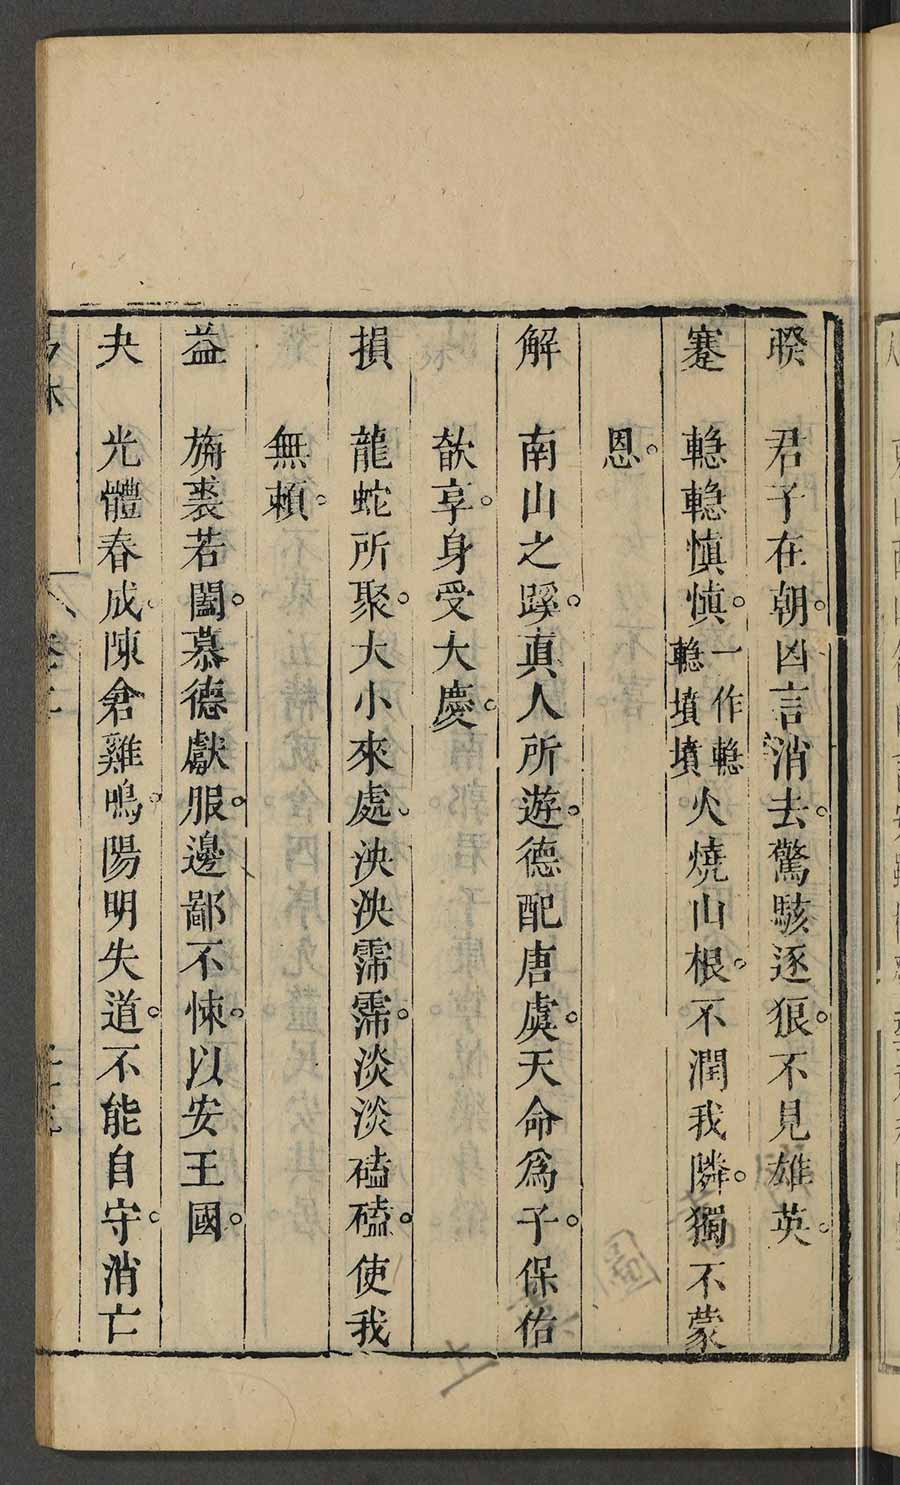 睽　君子在朝。凶言消去。驚駭逐狼。不見雄英。
蹇　轗轗慎慎。一作轗轗墳墳火燒山根。不潤我隣。獨不蒙
恩。
解　南山之蹊。真人所遊。德配唐虞。天命爲子。保佑
歆享。身受大慶。
損　龍蛇所聚。大小來處。泱泱霈霈。淡淡磕磕。使我
無賴。
益　旃裘若闔。慕德獻服。邊鄙不悚。以安王國。
夬　光體春成。陳倉雞鳴。陽明失道。不能自守。消亡